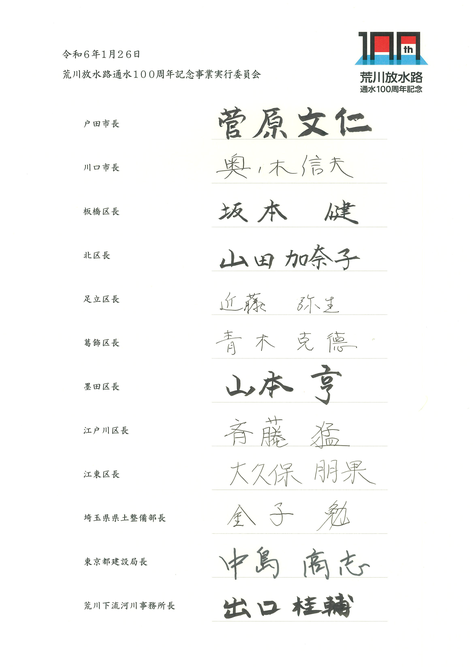 令和6年1月26日
荒川放水路通水100周年記念事業実行委員会
100th
荒川放水路
通水100周年記念
戸田市長 菅原文仁
川口市長 奥ノ木信夫
板橋区長 坂本 健
北区長 山田加奈子
足立区長 近藤 弥生
葛飾区長 青木 克德
墨田区長 山本 亨
江戸川区長 斉藤 猛
江東区長 大久保朋果
埼玉県県土整備部長 金子 勉
東京都建設局長 中島 高志
荒川下流河川事務所長 出口桂輔